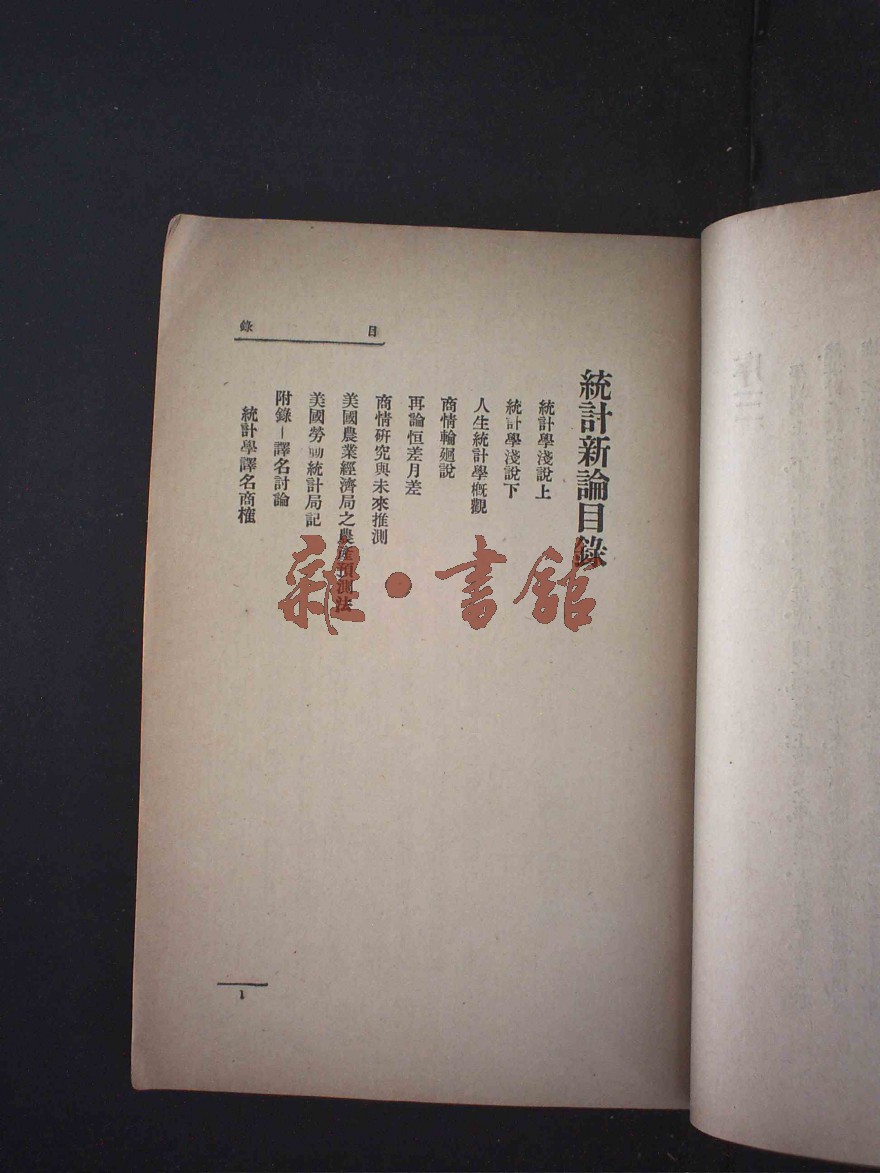 統計新論目錄
統計學淺說上
統計學淺說下
人生統計學概觀
商情輪廻說
再論恒差月差
商情研究與未來推測
美國農業經濟局之農產預測法
美國勞動統計局記
附錄—譯名討論
統計學譯名商榷
目錄
1
雜・書館